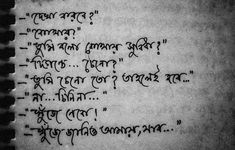 -"দেখা করবে?"
-"কোথায়?"
-"তুমি বলো কোথায় সুবিধা?"
-"দিগন্তে... চেনো?"
-"তুমি চেনো তো? তাহলেই হবে..."
-"না... চিনি না..."
-"খুঁজে নেবো!"
-"খুঁজে জানিও আমায়, যাব..."